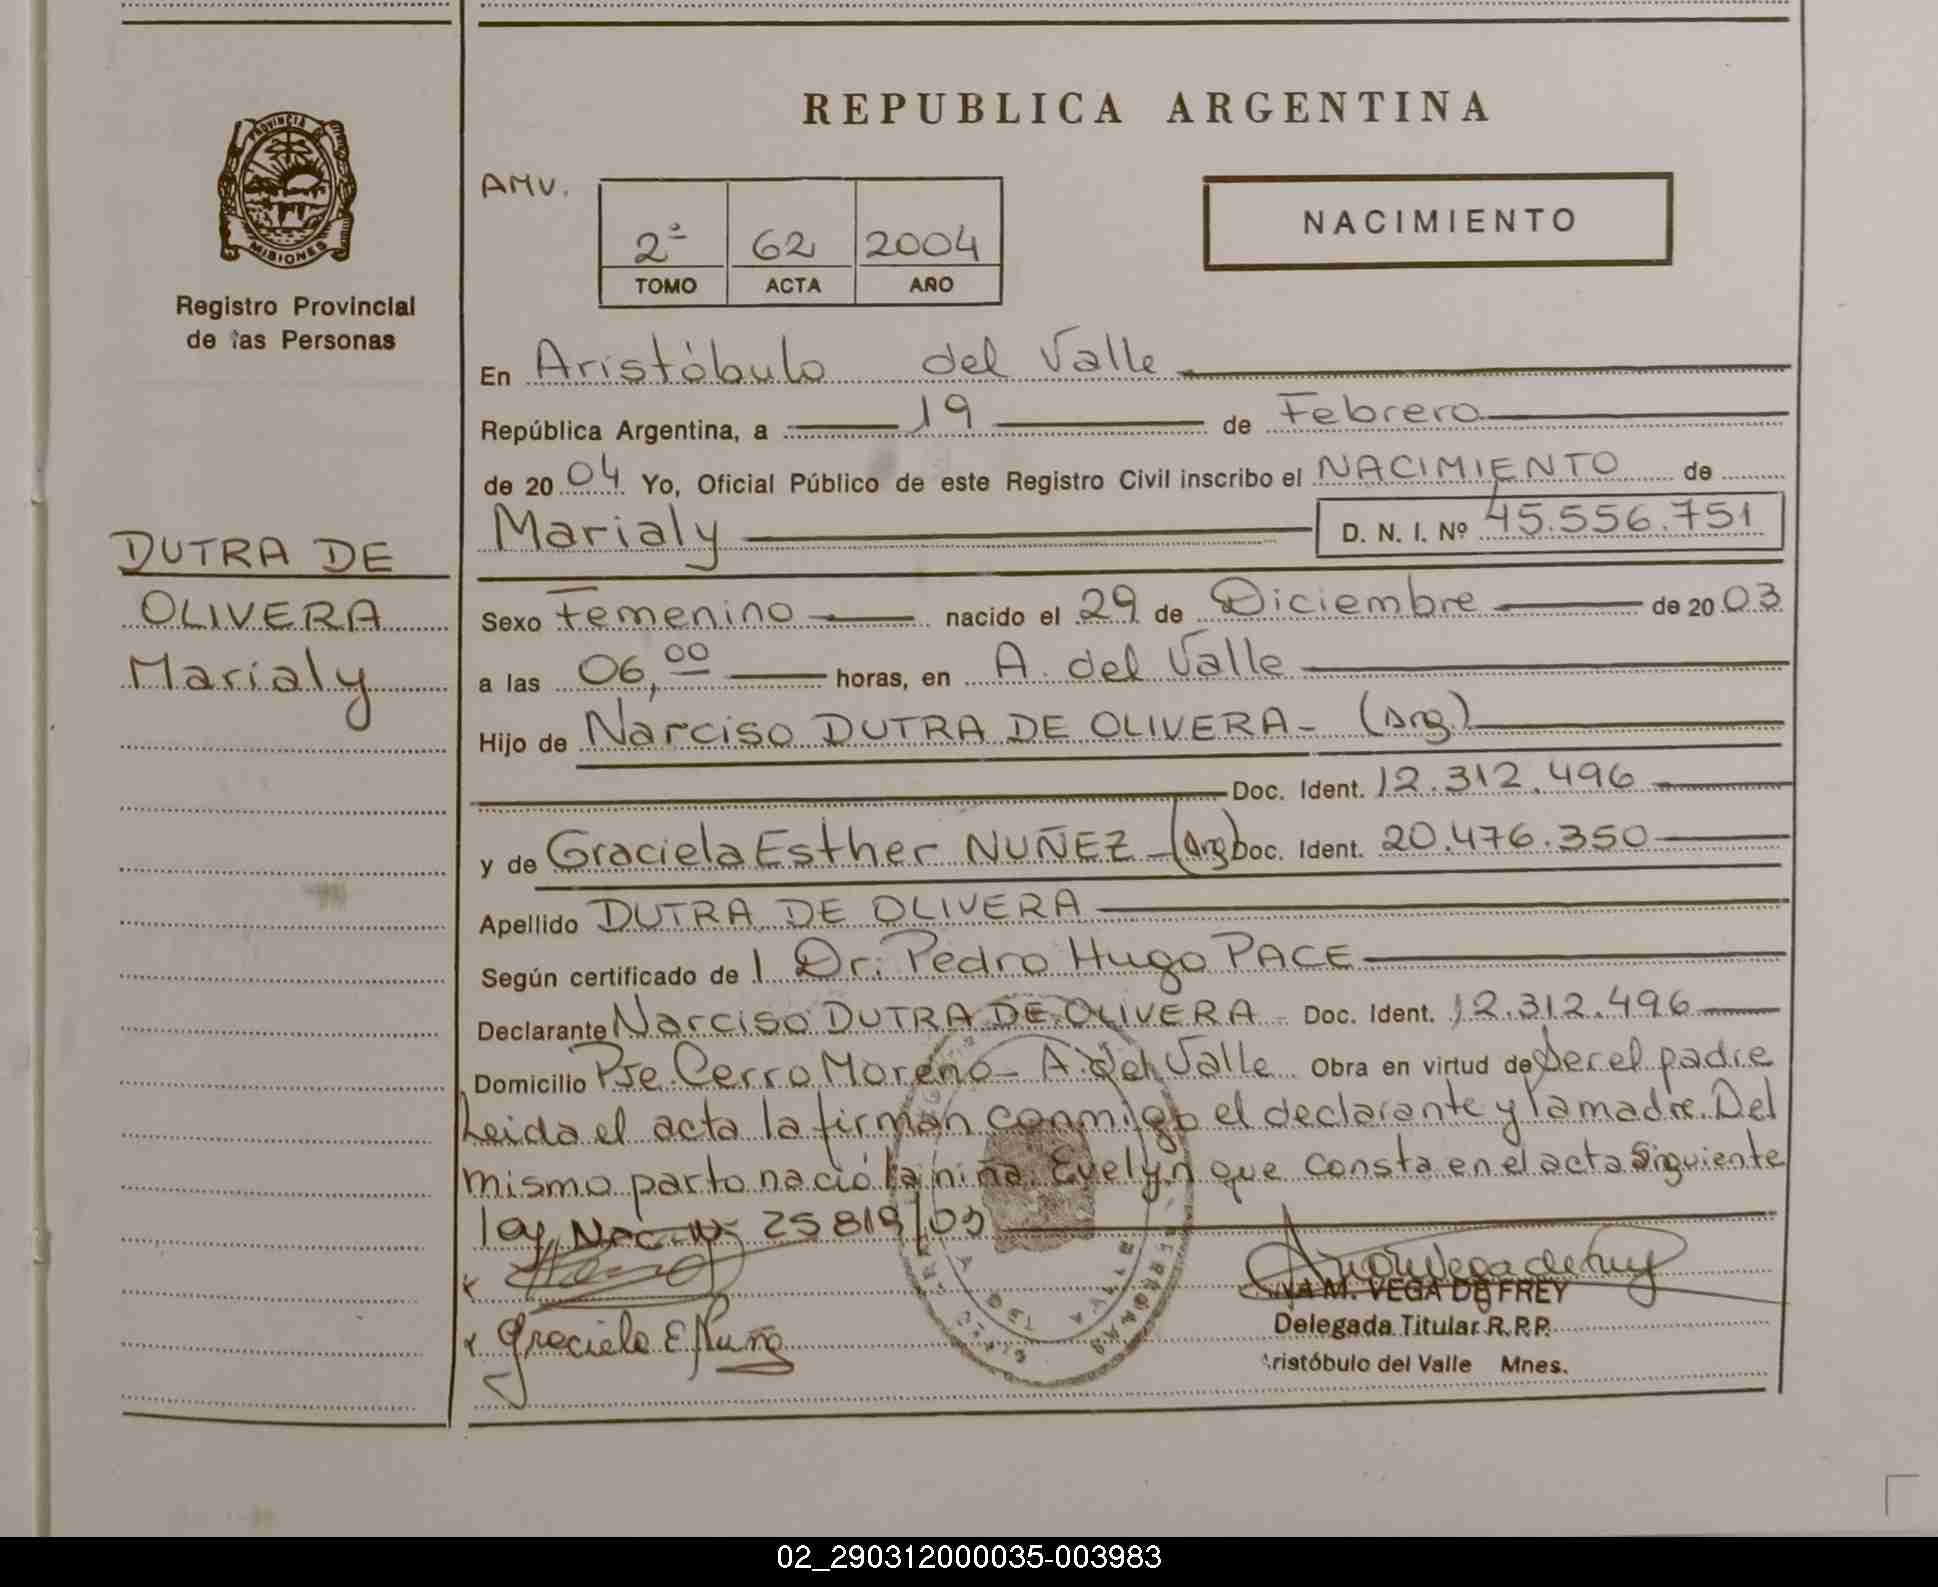 REPUBLICA ARGENTINA
PROVINCIA DE
MISIONES
Registro Provincial
de las Personas
AMV.
2ª 62 2004
TOMO ACTA AÑO
NACIMIENTO
En Aristóbulo del Valle
República Argentina, a 19 de Febrero
de 20 04 Yo, Oficial Público de este Registro Civil inscribo el NACIMIENTO de
Marialy D. N. I. Nº 45.556.751
DUTRA DE
OLIVERA
Marialy
Sexo Femenino nacido el 29 de Diciembre de 20 03
a las 06,00 horas, en A. del Valle
Hijo de Narciso DUTRA DE OLIVERA - (Arg.)
Doc. Ident. 12.312.496
y de Graciela Esther NUÑEZ - (Arg) Doc. Ident. 20.476.350
Apellido DUTRA DE OLIVERA
Según certificado de l Dr. Pedro Hugo PACE
Declarante Narciso DUTRA DE OLIVERA - Doc. Ident. 12.312.496
Domicilio Pje. Cerro Moreno - A. del Valle Obra en virtud de ser el padre
Leida el acta la firman conmigo el declarante y la madre. Del
mismo parto nació la niña Evelyn que consta en el acta siguiente
ley Nac. Nº 25819/03
x
x Graciela E Nuñe
M. VEGA DE FREY
Delegada Titular R.P.P.
ristóbulo del Valle Mnes.
02_290312000035-003983